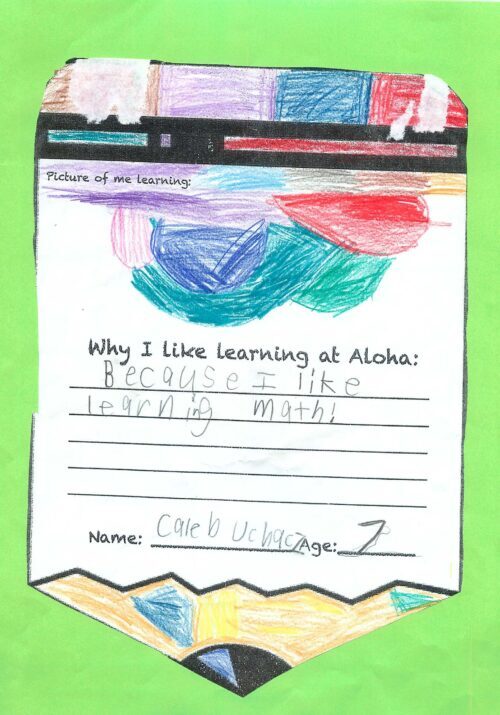 Picture of me learning:
Why I like learning at Aloha:
Because I like
learning math!
Name: Caleb Age: 7